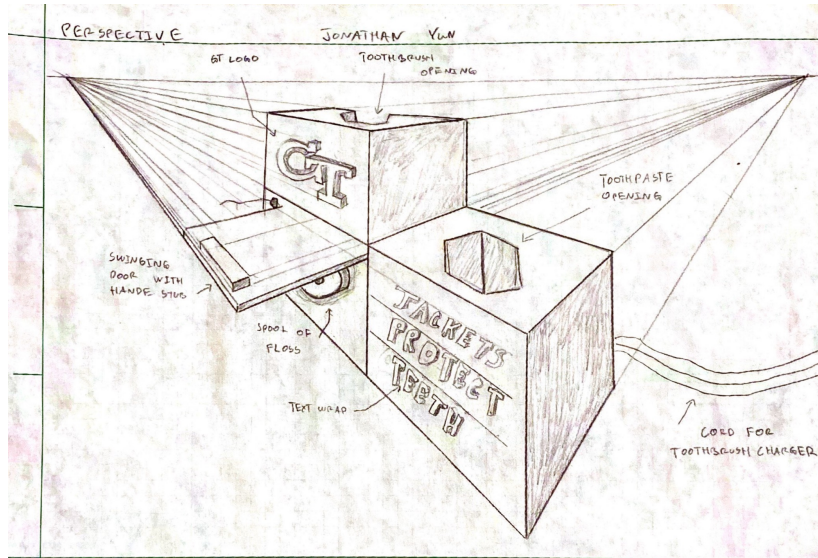 PERSPECTIVE JONATHAN YUN
GT LOGO
TOOTHBRUSH
OPENING
GT
TOOTHPASTE
OPENING
SWINGING
DOOR WITH
HANDE STUB
SPOOL OF
FLOSS
JACKETS
PROTECT
TEETH
TEXT WRAP
CORD FOR
TOOTHBRUSH CHARGER